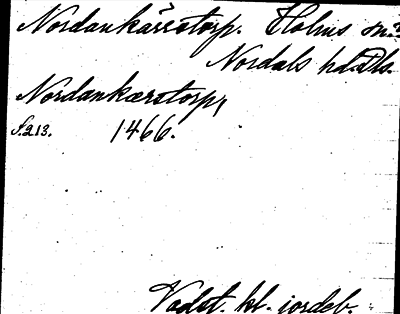 Nordankärrstorp. Holms sn.
Nordals hd. Dls.
Nordankærstorp,
s. 213. 1466.
Vadst. kl. jordeb.